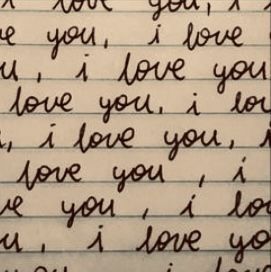 i love you, i
e you, i love
u, i love you
love you, i lov
, i love you, i
love you , i
ve you , i lo
u, i love yo